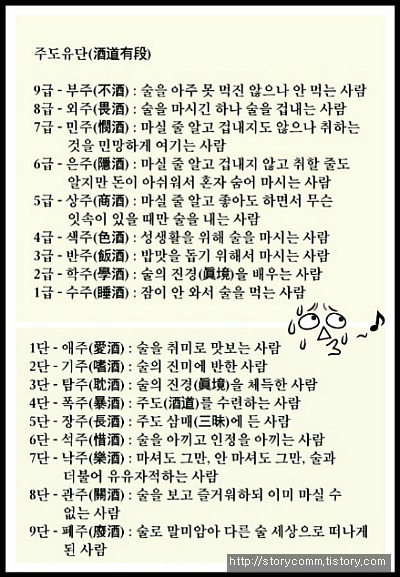 주도유단(酒道有段)
9급 - 부주(不酒) : 술을 아주 못 먹진 않으나 안 먹는 사람
8급 - 외주(畏酒) : 술을 마시긴 하나 술을 겁내는 사람
7급 - 민주(憫酒) : 마실 줄 알고 겁내지도 않으나 취하는
것을 민망하게 여기는 사람
6급 - 은주(隱酒) : 마실 줄 알고 겁내지 않고 취할 줄도
알지만 돈이 아쉬워서 혼자 숨어 마시는 사람
5급 - 상주(商酒) : 마실 줄 알고 좋아도 하면서 무슨
잇속이 있을 때만 술을 내는 사람
4급 - 색주(色酒) : 성생활을 위해 술을 마시는 사람
3급 - 반주(飯酒) : 밥맛을 돕기 위해서 마시는 사람
2급 - 학주(學酒) : 술의 진경(眞境)을 배우는 사람
1급 - 수주(睡酒) : 잠이 안 와서 술을 먹는 사람
1단 - 애주(愛酒) : 술을 취미로 맛보는 사람
2단 - 기주(嗜酒) : 술의 진미에 반한 사람
3단 - 탐주(耽酒) : 술의 진경(眞境)을 체득한 사람
4단 - 폭주(暴酒) : 주도(酒道)를 수련하는 사람
5단 - 장주(長酒) : 주도 삼매(三昧)에 든 사람
6단 - 석주(惜酒) : 술을 아끼고 인정을 아끼는 사람
7단 - 낙주(樂酒) : 마셔도 그만, 안 마셔도 그만, 술과
더불어 유유자적하는 사람
8단 - 관주(關酒) : 술을 보고 즐거워하되 이미 마실 수
없는 사람
9단 - 폐주(廢酒) : 술로 말미암아 다른 술 세상으로 떠나게
된 사람
http://storycomm.tistory.com